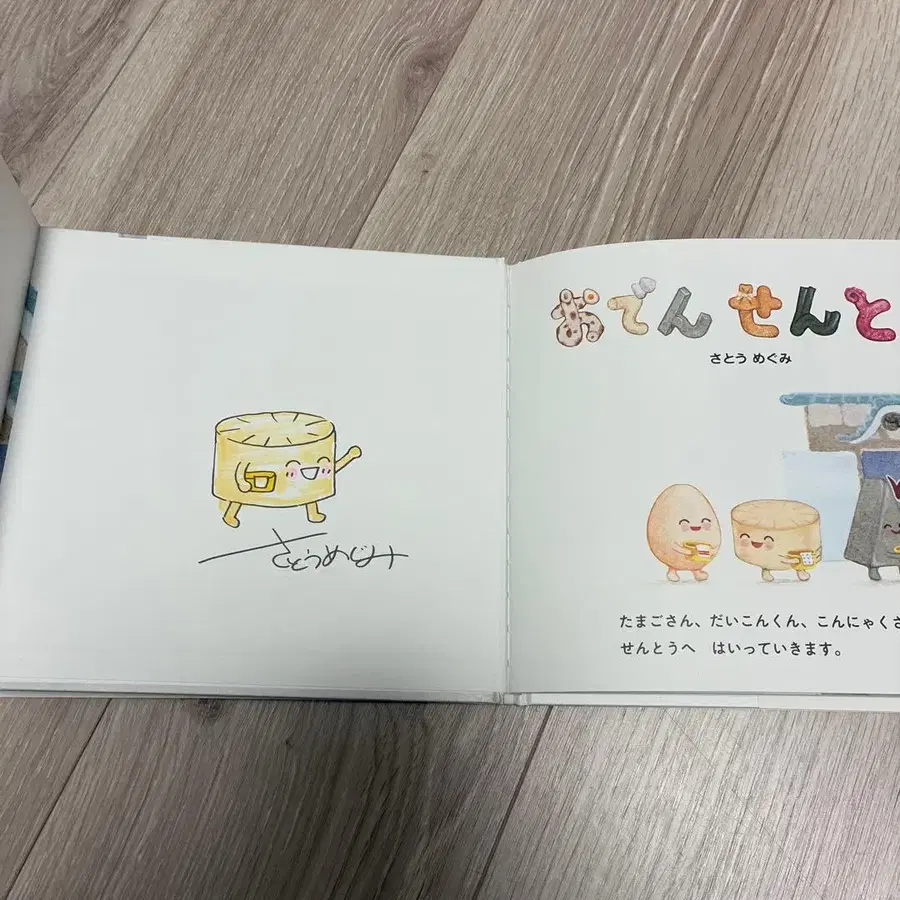 さとうめぐみ
おでん せんと
さとう めぐみ
たまごさん、だいこんくん、こんにゃくさ
せんとうへ はいっていきます。